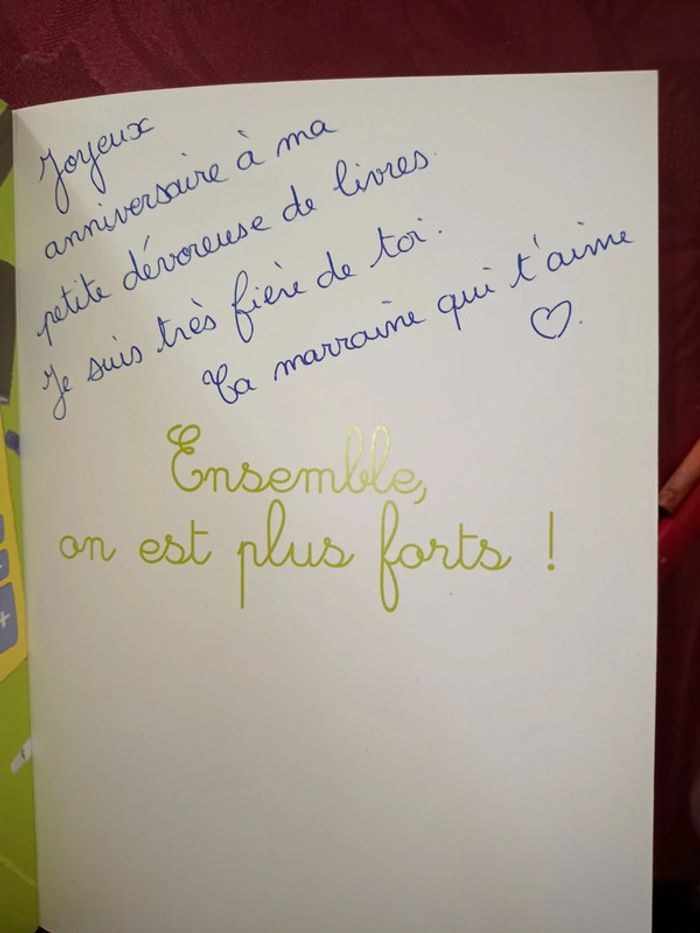 Joyeux
anniversaire à ma
petite dévoreuse de livres.
Je suis très fière de toi.
Ta marraine qui t'aime
♡.
Ensemble,
on est plus forts !